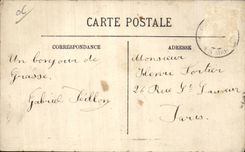 CARTE POSTALE
CORRESPONDANCE
ADRESSE
Un bonjour de
Grasse.
Gabriel
Monsieur
Henri Fortier
26 Rue St Sauveur
Paris.